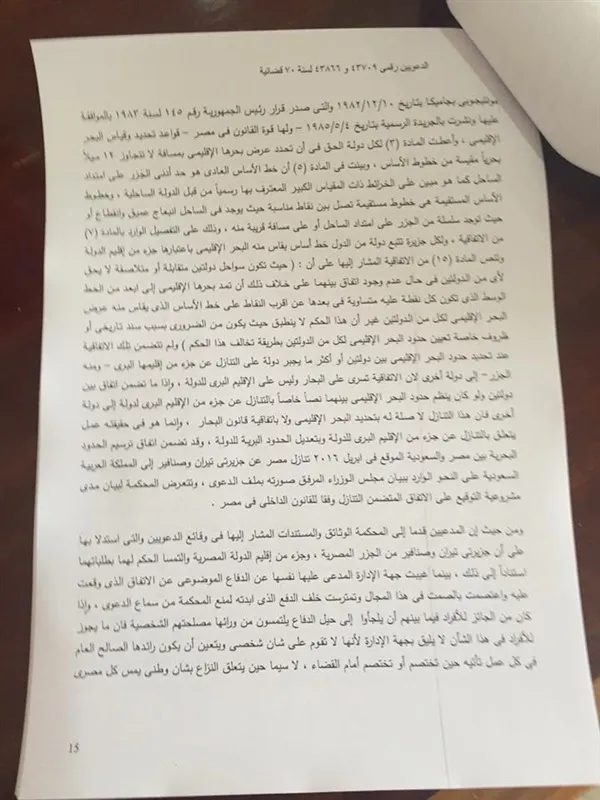 الدعويين رقمى ٤٣٧٠٩ و ٤٣٨٦٦ لسنة ٧٠ قضائية
مونتيجوبى بجاميكا بتاريخ ١٩٨٢/١٢/١٠ والتى صدر قرار رئيس الجمهورية رقم ١٤٥ لسنة ١٩٨٣ بالموافقة
عليها ونشرت بالجريدة الرسمية بتاريخ ١٩٨٥/٥/٤ – ولها قوة القانون فى مصر – قواعد تحديد وقياس البحر
الإقليمى ، وأعطت المادة (٣) لكل دولة الحق فى أن تحدد عرض بحرها الإقليمى بمسافة لا تتجاوز ١٢ ميلاً
بحرياً مقيسة من خطوط الأساس ، وبينت فى المادة (٥) أن خط الأساس العادى هو حد أدنى الجزر على امتداد
الساحل كما هو مبين على الخرائط ذات المقياس الكبير المعترف بها رسمياً من قبل الدولة الساحلية ، وخطوط
الأساس المستقيمة هى خطوط مستقيمة تصل بين نقاط مناسبة حيث يوجد فى الساحل انبعاج عميق وانقطاع أو
حيث توجد سلسلة من الجزر على امتداد الساحل أو على مسافة قريبة منه ، وذلك على التفصيل الوارد بالمادة (٧)
من الاتفاقية ، ولكل جزيرة تتبع دولة من الدول خط أساس يقاس منه البحر الإقليمى باعتبارها جزء من إقليم الدولة
وتنص المادة (١٥) من الاتفاقية المشار إليها على أن : ( حيث تكون سواحل دولتين متقابلة أو متلاصقة لا يحق
لأى من الدولتين فى حال عدم وجود اتفاق بينهما على خلاف ذلك أن تمد بحرها الإقليمى إلى ابعد من الخط
الوسط الذى تكون كل نقطة عليه متساوية فى بعدها عن اقرب النقاط على خط الأساس الذى يقاس منه عرض
البحر الإقليمى لكل من الدولتين غير أن هذا الحكم لا ينطبق حيث يكون من الضرورى بسبب سند تاريخى أو
ظروف خاصة تعيين حدود البحر الإقليمى لكل من الدولتين بطريقة تخالف هذا الحكم ) ولم تتضمن تلك الاتفاقية
عند تحديد حدود البحر الإقليمى بين دولتين أو أكثر ما يجبر دولة على التنازل عن جزء من إقليمها البرى – ومنه
الجزر– إلى دولة أخرى لان الاتفاقية تسرى على البحار وليس على الإقليم البرى للدولة ، وإذا ما تضمن اتفاق بين
دولتين ولو كان ينظم حدود البحر الإقليمى بينهما نصاً خاصاً بالتنازل عن جزء من الإقليم البرى لدولة إلى دولة
أخرى فان هذا التنازل لا صلة له بتحديد البحر الإقليمى ولا باتفاقية قانون البحار ، وإنما هو فى حقيقته عمل
يتعلق بالتنازل عن جزء من الإقليم البرى للدولة وبتعديل الحدود البرية للدولة ، وقد تضمن اتفاق ترسيم الحدود
البحرية بين مصر والسعودية الموقع فى ابريل ٢٠١٦ تنازل مصر عن جزيرتى تيران وصنافير إلى المملكة العربية
السعودية على النحو الوارد ببيان مجلس الوزراء المرفق صورته بملف الدعوى ، وتتعرض المحكمة لبيان مدى
مشروعية التوقيع على الاتفاق المتضمن التنازل وفقا للقانون الداخلى فى مصر .
ومن حيث إن المدعيين قدما إلى المحكمة الوثائق والمستندات المشار إليها فى وقائع الدعويين والتى استدلا بها
على أن جزيرتى تيران وصنافير من الجزر المصرية ، وجزء من إقليم الدولة المصرية والتمسا الحكم لهما بطلباتهما
استناداً إلى ذلك ، بينما غيبت جهة الإدارة المدعى عليها نفسها عن الدفاع الموضوعى عن الاتفاق الذى وقعت
عليه واعتصمت بالصمت فى هذا المجال وتمترست خلف الدفع الذى ابدته لمنع المحكمة من سماع الدعوى ، وإذا
كان من الجائز للأفراد فيما بينهم أن يلجأوا إلى حيل الدفاع يلتمسون من ورائها مصلحتهم الشخصية فان ما يجوز
للأفراد فى هذا الشأن لا يليق بجهة الإدارة لأنها لا تقوم على شان شخصى ويتعين أن يكون رائدها الصالح العام
فى كل عمل تأتيه حين تختصم أو تختصم أمام القضاء ، لا سيما حين يتعلق النزاع بشان وطنى يمس كل مصرى
15